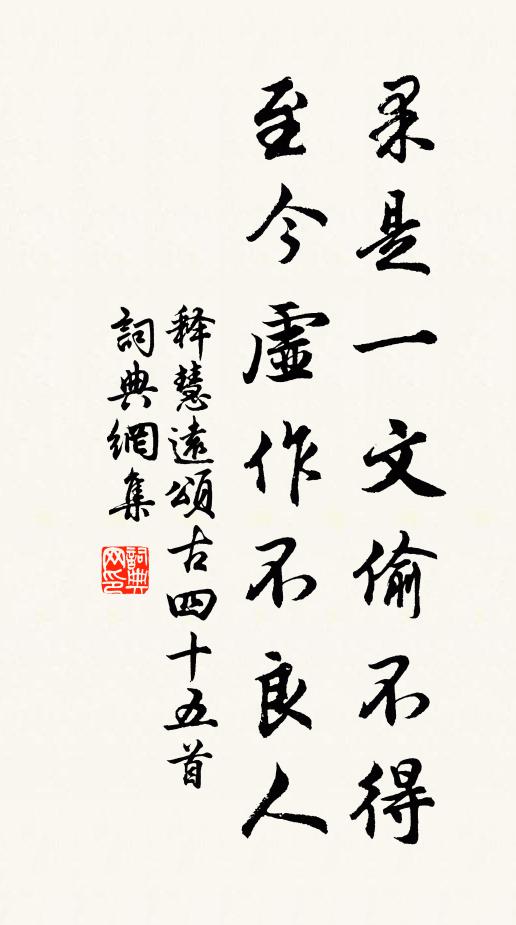 果是一文偷不得
至今虛作不良人
释慧遠頌古四十五首
詞典網集
詞典網印